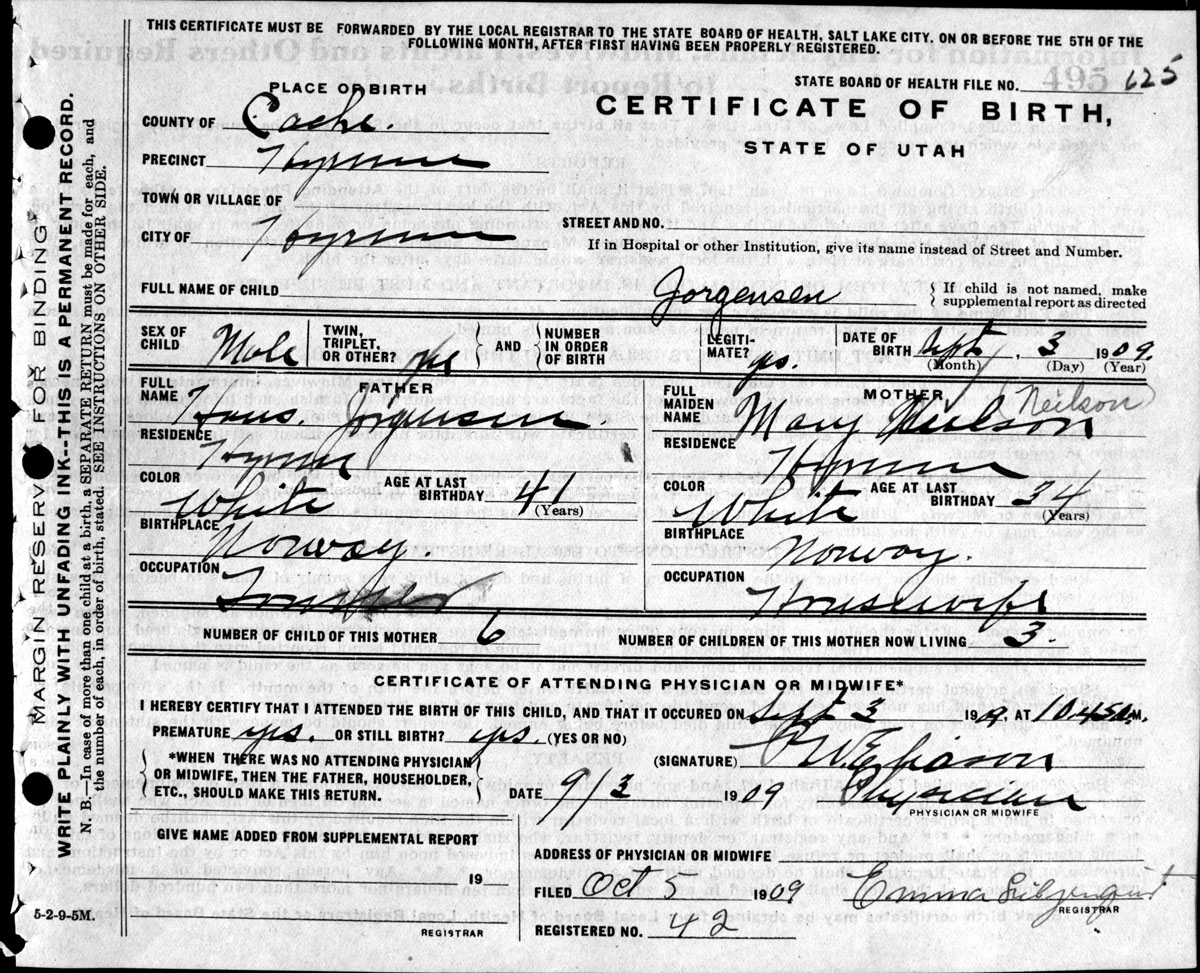 THIS CERTIFICATE MUST BE FORWARDED BY THE LOCAL REGISTRAR TO THE STATE BOARD OF HEALTH, SALT LAKE CITY, ON OR BEFORE THE 5TH OF THE
FOLLOWING MONTH, AFTER FIRST HAVING BEEN PROPERLY REGISTERED.
STATE BOARD OF HEALTH FILE NO. 495 625
PLACE OR BIRTH
CERTIFICATE OF BIRTH,
STATE OF UTAH
COUNTY OF Cache.
PRECINCT Hyrum
TOWN OR VILLAGE OF
STREET AND NO.
CITY OF Hyrum
If in Hospital or other Institution, give its name instead of Street and Number.
FULL NAME OF CHILD Jorgensen
If child is not named, make
supplemental report as directed
SEX OF CHILD Male
TWIN, TRIPLET, OR OTHER?
AND
NUMBER IN ORDER OF BIRTH
LEGITI-MATE? yes.
DATE OF BIRTH Sept, 3 1909.
(Month) (Day) (Year)
FATHER
FULL NAME Hans. Jorgensen.
RESIDENCE Hyrum
COLOR White
AGE AT LAST BIRTHDAY 41
(Years)
BIRTHPLACE Norway.
OCCUPATION
MOTHER
FULL MAIDEN NAME Mary Neilson Neilson
RESIDENCE Hyrum
COLOR White
AGE AT LAST BIRTHDAY 34
(Years)
BIRTHPLACE Norway.
OCCUPATION Housewife
NUMBER OF CHILD OF THIS MOTHER 6
NUMBER OF CHILDREN OF THIS MOTHER NOW LIVING 3.
CERTIFICATE OF ATTENDING PHYSICIAN OR MIDWIFE*
I HEREBY CERTIFY THAT I ATTENDED THE BIRTH OF THIS CHILD, AND THAT IT OCCURED ON Sept 3 1909, AT 10.45 a.M.
PREMATURE yes. OR STILL BIRTH? yes. (YES OR NO)
*WHEN THERE WAS NO ATTENDING PHYSICIAN
OR MIDWIFE, THEN THE FATHER, HOUSEHOLDER,
ETC., SHOULD MAKE THIS RETURN.
(SIGNATURE) Eliason
DATE 9/3 1909 Physician
PHYSICIAN OR MIDWIFE
GIVE NAME ADDED FROM SUPPLEMENTAL REPORT
19
REGISTRAR
ADDRESS OF PHYSICIAN OR MIDWIFE
FILED Oct 5 1909 Emma
REGISTRAR
REGISTERED NO. 42
5-2-9-5M.
MARGIN RESERVED FOR BINDING
WRITE PLAINLY WITH UNFADING INK--THIS IS A PERMANENT RECORD.
N. B.—In case of more than one child at a birth, a SEPARATE RETURN must be made for each, and
the number of each, in order of birth, stated. SEE INSTRUCTIONS ON OTHER SIDE.